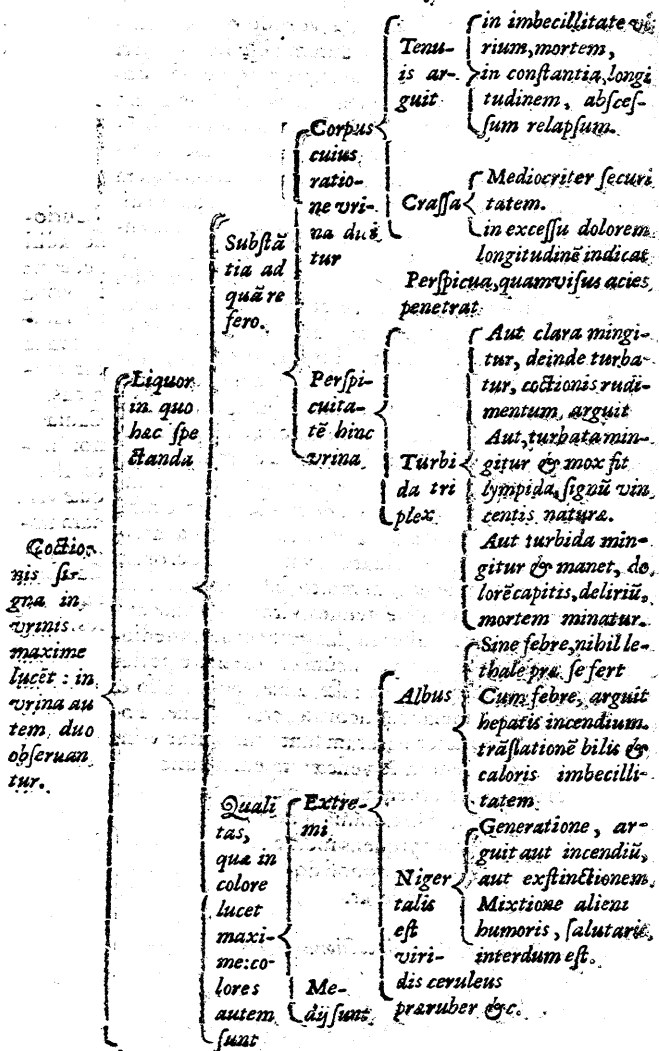 Coctio-
nis si-
gna in
vrinis
maxime
lucēt : in
vrina au
tem duo
obseruan
tur.
Liquor
in quo
hæc spe
ctanda
Substā
tia ad
quā re
fero.
Corpus
cuius
ratio-
ne vri-
na duci
tur
Tenu-
is ar-
guit
in imbecillitate vi
rium, mortem,
in constantia, longi
tudinem, absces-
sum relapsum.
Crassa
Mediocriter securi
tatem.
in excessu dolorem
longitudinē indicat
Perspi-
cuita-
tē hinc
vrina
Perspicua, quam visus acies
penetrat
Turbi
da tri
plex
Aut clara mingi-
tur, deinde turba-
tur, coctionis rudi-
mentum, arguit
Aut, turbata min-
gitur & mox fit
lympida, signū vin
centis naturæ.
Aut turbida min-
gitur & manet, do
lorē capitis, deliriū,
mortem minatur.
Quali
tas,
quæ in
colore
lucet
maxi-
me: co-
lores
autem
sunt
Extre-
mi
Albus
Sine febre, nihil le-
thale præ se fert
Cum febre, arguit
hepatis incendium.
trāslationē bilis &
caloris imbecilli-
tatem
Niger
talis
est
viri-
dis ceruleus
præruber &c.
Generatione, ar-
guit aut incendiū,
aut exstinctionem,
Mixtione alieni
humoris, salutaris,
interdum est.
Me-
dij sunt